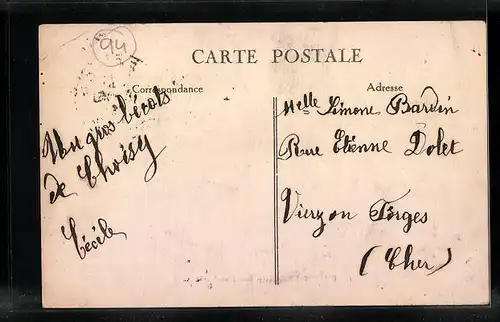 94
CARTE POSTALE
Correspondance
Adresse
Un gros bécots
de Choisy
Cécile
Melle Simone Bardin
Rue Etienne Dolet
Vierzon Forges
(Cher)